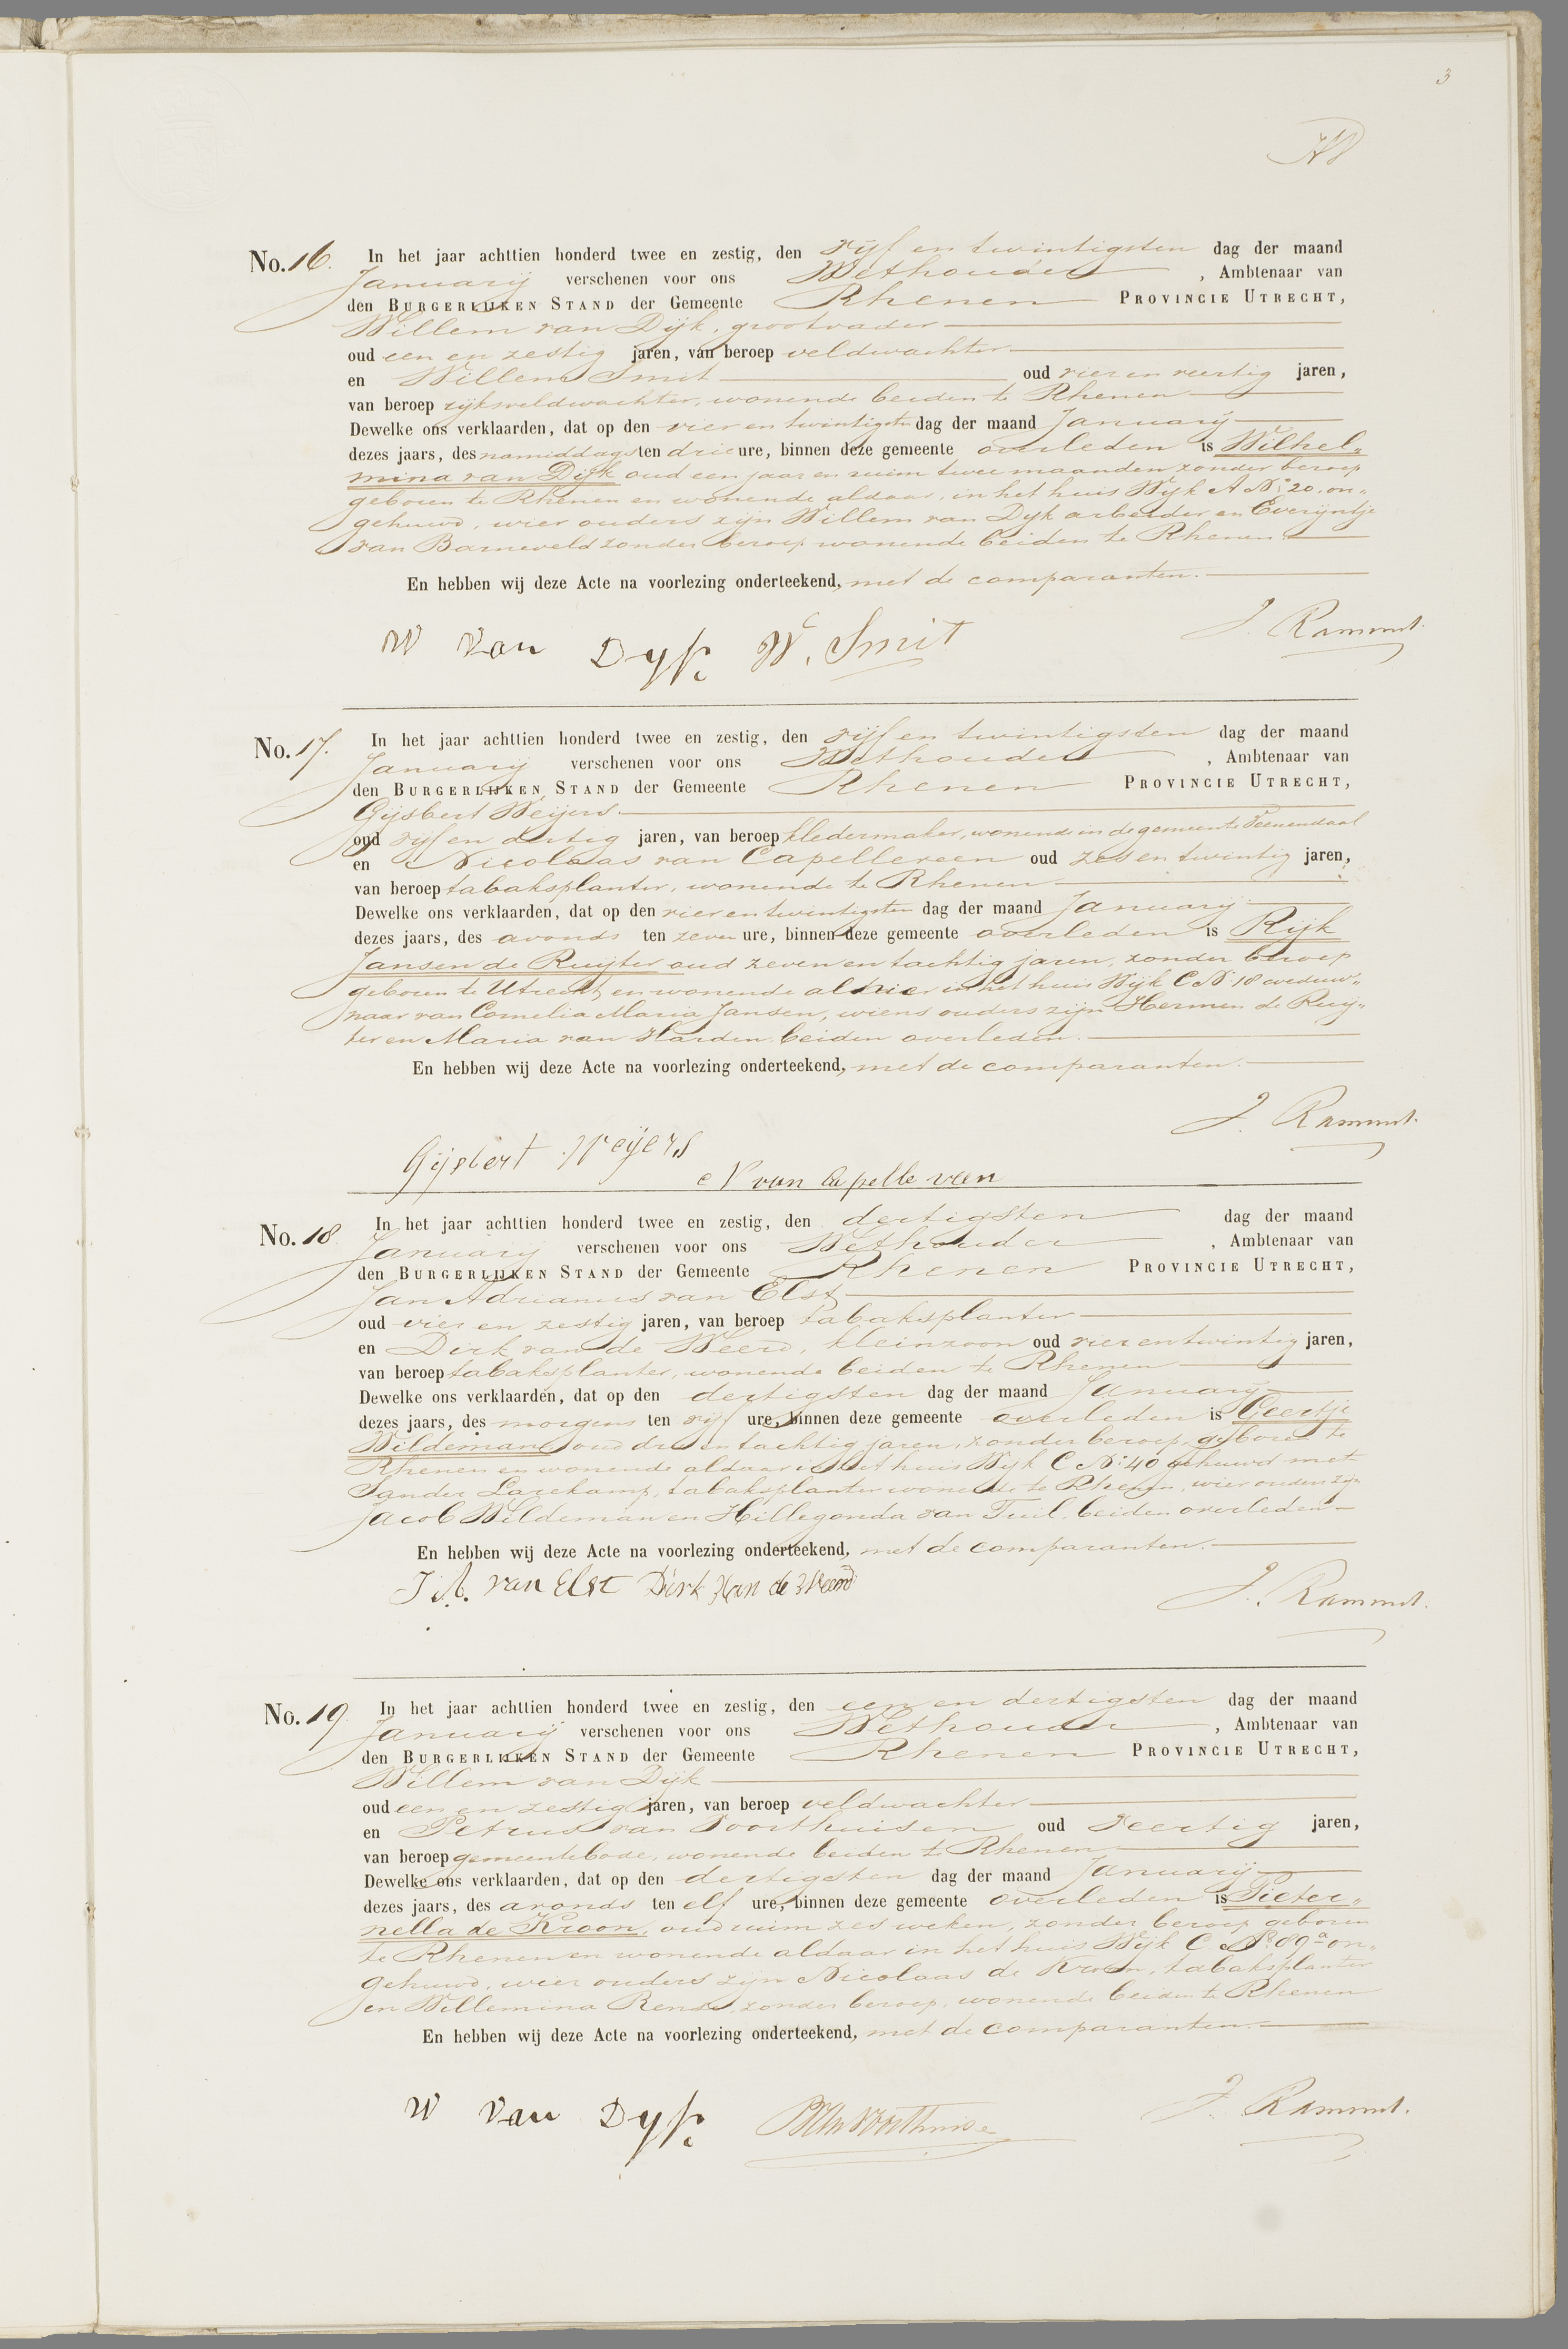 3
No. 16. In het jaar achttien honderd twee en zestig, den vijf en twintigsten dag der maand
Januarij verschenen voor ons Wethouder, Ambtenaar van
den BURGERLIJKEN STAND der Gemeente Rhenen PROVINCIE UTRECHT,
Willem van Dijk, grootvader
oud een en zestig jaren, van beroep veldwachter
en Willem Smit oud vier en veertig jaren,
van beroep rijksveldwachter, wonende beiden te Rhenen
Dewelke ons verklaarden, dat op den vier en twintigsten dag der maand Januarij
dezes jaars, des namiddags ten drie ure, binnen deze gemeente overleden is Wilhel„
mina van Dijk oud een jaar en ruim twee maanden zonder beroep
geboren te Rhenen en wonende aldaar, in het huis Wijk A No. 20. on„
gehuwd, wier ouders zijn Willem van Dijk arbeider en Everijntje
van Barneveld zonder beroep wonende beiden te Rhenen.
En hebben wij deze Acte na voorlezing onderteekend, met de comparanten.
W van Dyk W. Smit J. Rammet.
No. 17. In het jaar achttien honderd twee en zestig, den vijf en twintigsten dag der maand
Januarij verschenen voor ons Wethouder, Ambtenaar van
den BURGERLIJKEN STAND der Gemeente Rhenen PROVINCIE UTRECHT,
Gijsbert Weijers.
oud vijf en dertig jaren, van beroep kledermaker, wonende in de gemeente Veenendaal
en Nicolaas van Capelleveen oud zes en twintig jaren,
van beroep tabaksplanter, wonende te Rhenen
Dewelke ons verklaarden, dat op den vier en twintigsten dag der maand Januarij
dezes jaars, des avonds ten zeven ure, binnen deze gemeente overleden is Rijk
Jansen de Ruijter oud zeven en tachtig jaren, zonder beroep
geboren te Utrecht en wonende alhier in het huis Wijk C No. 18 weduw„
naar van Cornelia Maria Jansen, wiens ouders zijn Hermen de Ruij„
ter en Maria van Harden, beiden overleden.
En hebben wij deze Acte na voorlezing onderteekend, met de comparanten.
J. Rammet.
Gijsbert Weijers
N van Capelle veen
No. 18. In het jaar achttien honderd twee en zestig, den dertigsten dag der maand
Januarij verschenen voor ons Wethouder, Ambtenaar van
den BURGERLIJKEN STAND der Gemeente Rhenen PROVINCIE UTRECHT,
Jan Adrianus van Elst
oud vier en zestig jaren, van beroep tabaksplanter
en Dirk van de Weerd, kleinzoon oud vier en twintig jaren,
van beroep tabaksplanter, wonende beiden te Rhenen
Dewelke ons verklaarden, dat op den dertigsten dag der maand Januarij
dezes jaars, des morgens ten vijf ure, binnen deze gemeente overleden is Geertje
Wildeman oud drie en tachtig jaren, zonder beroep, geboren te
Rhenen en wonende aldaar in het huis Wijk C No. 40 gehuwd met
Sander Larekamp, tabaksplanter wonende te Rhenen, wier ouders zijn
Jacob Wildeman en Hillegonda van Tuil, beiden overleden
En hebben wij deze Acte na voorlezing onderteekend, met de comparanten.
J. A. van Elst Dirk Van de Weerd J. Rammet.
No. 19. In het jaar achttien honderd twee en zestig, den een en dertigsten dag der maand
Januarij verschenen voor ons Wethouder, Ambtenaar van
den BURGERLIJKEN STAND der Gemeente Rhenen PROVINCIE UTRECHT,
Willem van Dijk
oud een en zestig jaren, van beroep veldwachter
en Petrus van Voorthuisen oud Veertig jaren,
van beroep gemeentebode, wonende beiden te Rhenen
Dewelke ons verklaarden, dat op den dertigsten dag der maand Januarij
dezes jaars, des avonds ten elf ure, binnen deze gemeente overleden is Pieter„
nella de Kroon, oud ruim zes weken, zonder beroep geboren
te Rhenen en wonende aldaar in het huis Wijk C No. 89a on„
gehuwd, wier ouders zijn Nicolaas de Kroon, tabaksplanter
en Willemina Rense, zonder beroep, wonende beiden te Rhenen
En hebben wij deze Acte na voorlezing onderteekend, met de comparanten.
W van Dyk J. Rammet.